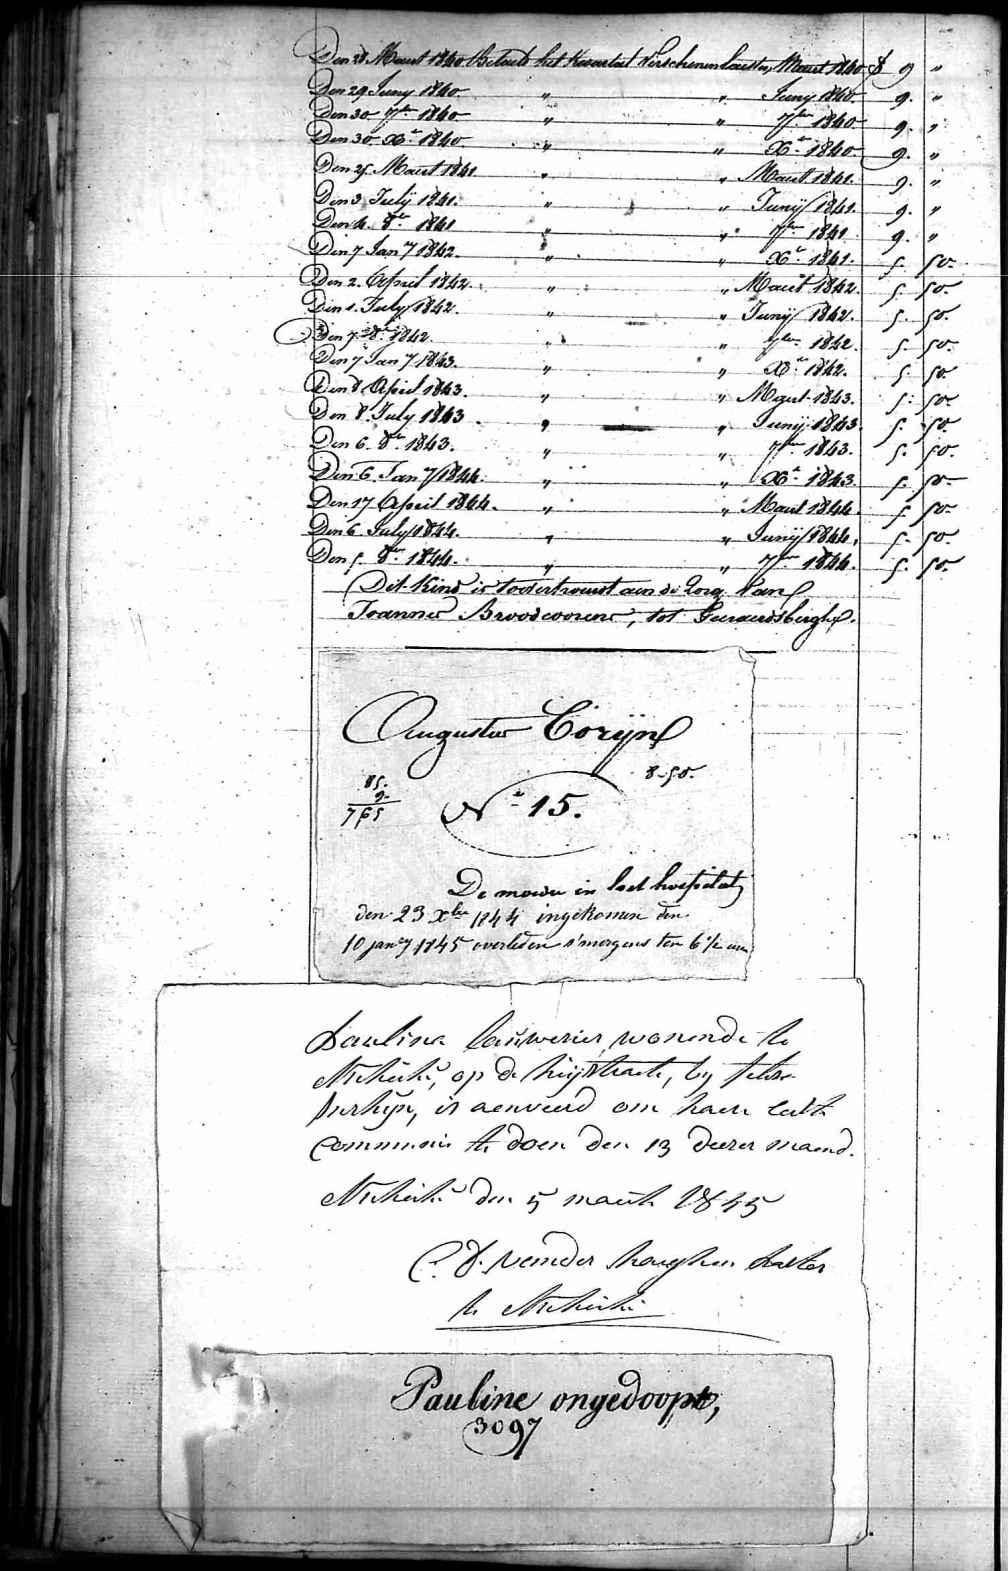 Den 28 Maert 1840 Betaelt het Kwartael Verschenen laesten Maert 1840 ₶ 9 "
Den 29 Juny 1840 " " Juny 1840 9. "
Den 30 7ber 1840 " " 7ber 1840 9. "
Den 30 Xr 1840 " " Xr 1840 9. "
Den 25 Maert 1841 " " Maert 1841. 9. "
Den 3 Julij 1841. " " Junij 1841. 9. "
Den 4. 8er 1841 " " 7ber 1841 9. "
Den 7 Jan y 1842. " " Xr 1841. 5. 50.
Den 2. April 1842. " " Maert 1842. 5. 50.
Den 1. July 1842. " " Junij 1842. 5. 50.
Den 7 8r 1842. " " 7ber 1842. 5. 50.
Den 7 Jan y 1843. " " Xer 1842. 5. 50.
Den 8 April 1843. " " Maert 1843. 5. 50.
Den 8. July 1843 " " Junij 1843. 5. 50.
Den 6. 8er 1843. " " 7ber 1843. 5. 50.
Den 6. Jan y 1844. " " Xr 1843. 5. 50.
Den 17 April 1844. " " Maert 1844. 5. 50.
Den 6 July 1844. " " Junij 1844. 5. 50.
Den 5. 8er 1844. " " 7ber 1844. 5. 50.
Dit Kind is toevertrouwt aen de Zorg Van
Joannes Broodcoorens, tot Geeraerdsberghe.
Augustus Corijn
8-50.
85.
9.
765
No 15.
De moeder in het hospitael
den 23 Xber 1844 ingekomen den
10 janry 1845 overleden s'morgens ten 6 1/2 uren
Paulina Lauwerier, wonende te
op de, by
is aenveerd om haere eerste
communie te doen den 13 deezer maend.
den 5 maert 1845
te
Pauline ongedoopt,
3097